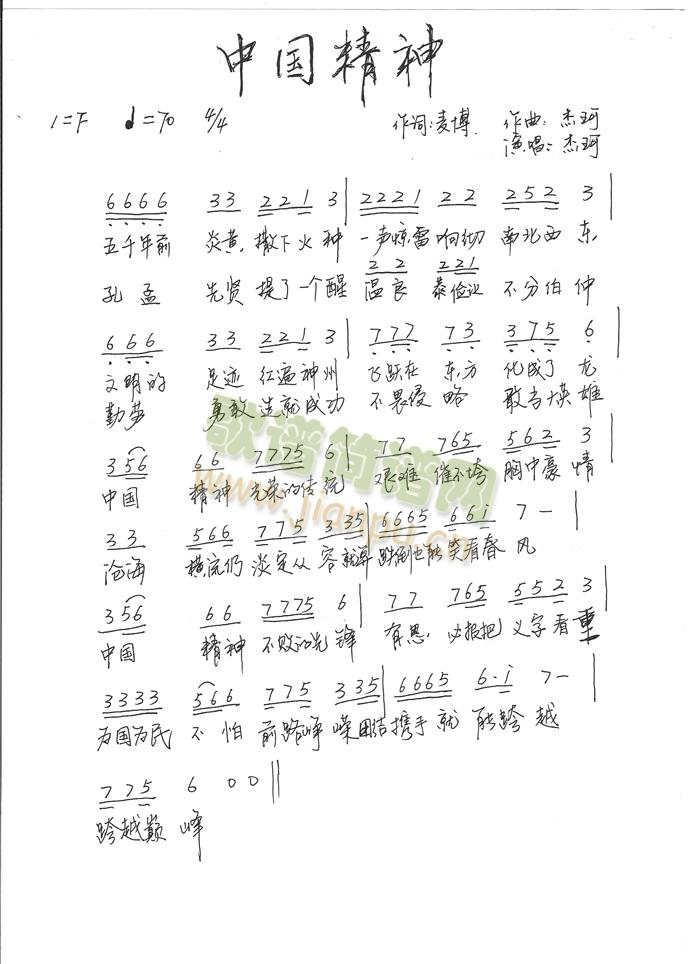 中国精神
1=F ♩=70 4/4 作词:麦博 作曲:杰珂
演唱:杰珂
6666 33 221 3 | 2221 22 252 3 |
五千年前 炎黄,撒下火种 一声惊雷响彻 南北西东,
22 221
孔孟 先贤 提了一个醒 温良 恭俭让 不分伯仲
666 33 221 3 | 777 73 375 6 |
文明的 足迹 红遍神州 飞跃在 东方 化成了龙
勤劳 勇敢 造就成功 不畏侵略 敢当大英雄
356 66 7775 6 | 77 765 562 3 |
中国 精神 光荣的传统 艰难 催不垮 胸中豪情
33 566 775 335 | 6665 661 7 - |
沧海 横流仍 淡定从容就算 跌倒也能笑看春风
356 66 7775 6 | 77 765 552 3 |
中国 精神 不败的先锋 有恩,必报把 义字看重
3333 566 775 335 | 6665 6·i 7 - |
为国为民 不怕 前路峥嵘团结携手就 能跨越
775 6 0 0 ||
跨越巅峰
歌谱简谱网
www.jianpu.cn